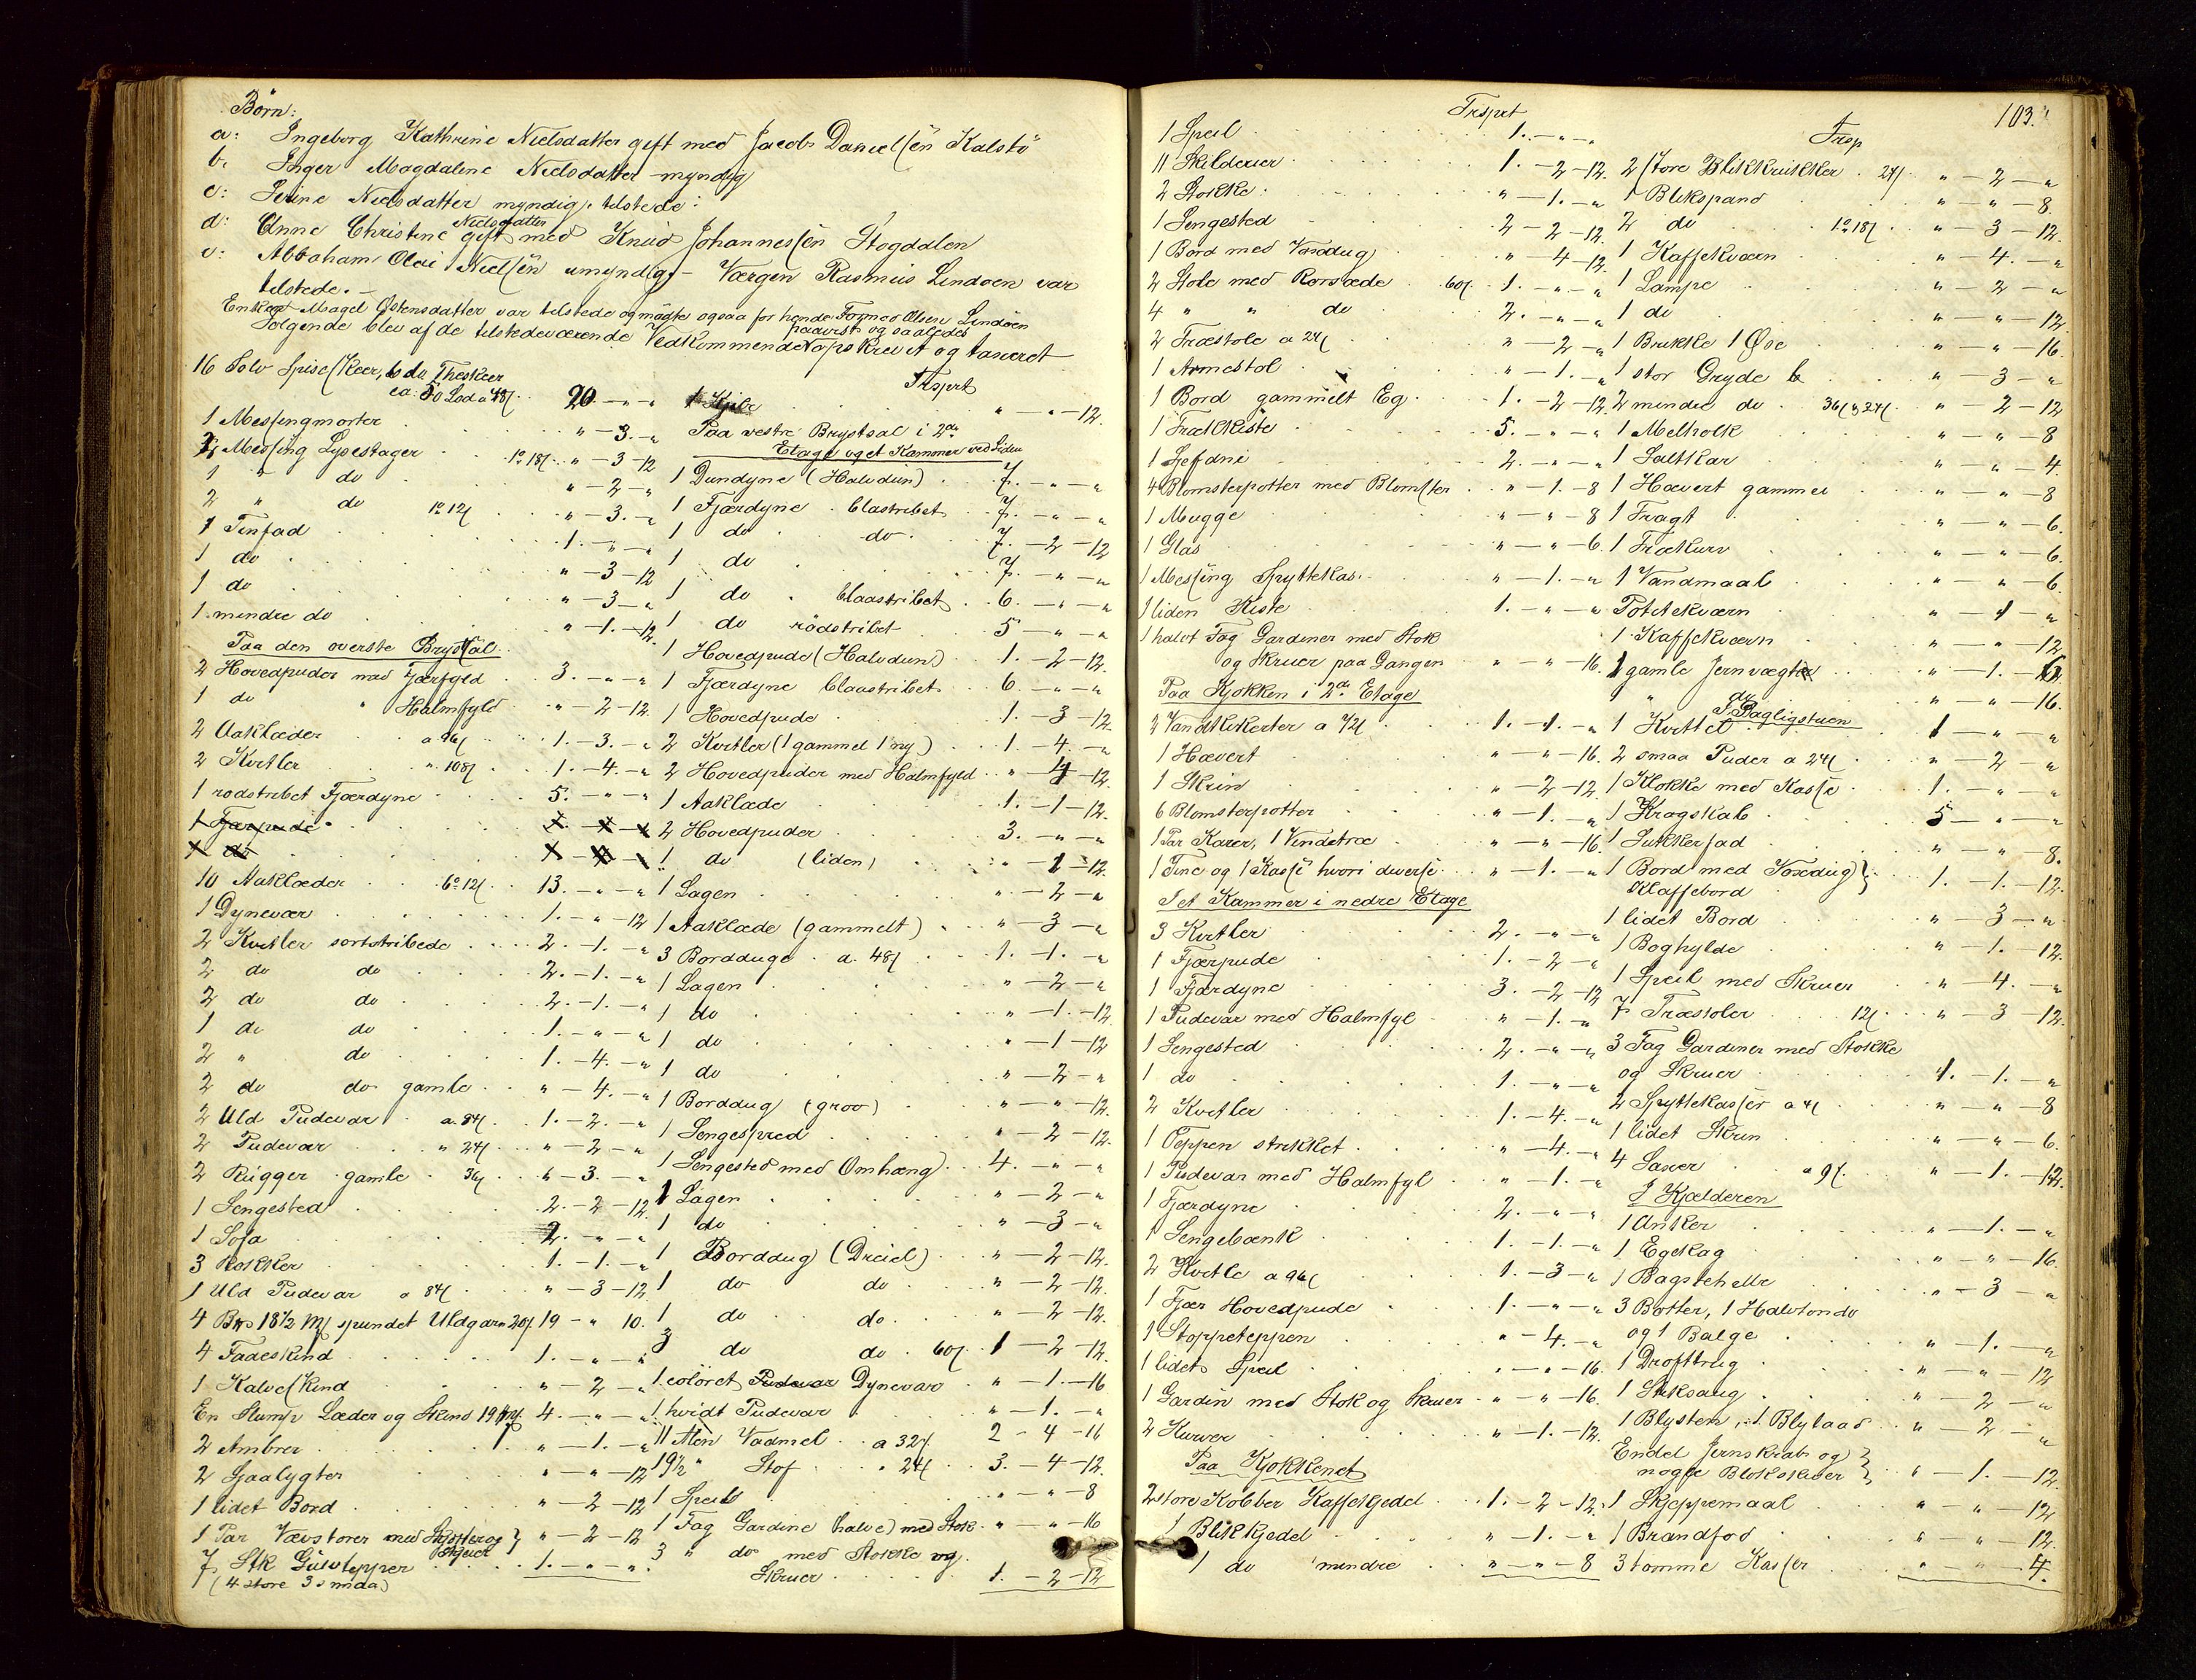 Børn:
a: Ingeborg Kathrine Nielsdatter gift med Jacob Danielsen Kalstø
b: Inger Magdalene Nielsdatter myndig
c: Serine Nielsdatter myndig. tilstede:
d: Anne Christine Nielsdatter gift med Knud Johannessen Stogdalen
e: Abraham Olai Nielsen umyndig – Værgen Rasmus Lindøen var
tilstede. –
Enken Magel Østensdatter var tilstede og mødte ogsaa for hende Tormod Olsen Lindøen
Følgende blev af de tilstedeværende Vedkommende paavist og saaledes opskrevet og taxeret
16 Sølv Spiseskeer, 6 do Theskeer
ca: 50 Lod a 48ß. 20. - " - "
1 Messingmorter " - 3. - "
2 Messing Lysestager 1 a 18ß. " - 3 - 12
1 " do " - 2 - "
2 " do 1 a 12ß " - 3. - "
1 Tinfad 1. - " - "
1 do " - 3 - 12
1 do " - 3 - "
1 mindre do " - 1. - 12.
Paa den øverste Brystsal
2 Hovedpuder med Fjærfyld 3. - " - "
1 do " Halmfyld " - 2 - 12.
2 Aaklæder a 96ß 1. - 3. - "
2 Kvitler " 108ß 1. - 4. - "
1 rødstribet Fjærdyne 5. - " - "
1 Fjærpude
1 do
10 Aaklæder 6 a 12ß 13. - " - "
1 Dynevær 1. - " - 12
2 Kvitler sortstribede 2. - 1. - "
2 do do 2. - 1. - "
2 do do 2. - 1. - "
1 do do 1. - " - "
2 " do 1. - 4. - "
2 do do gamle " - 4. - "
2 Uld Pudevar a 84ß 1. - 2. - "
2 Pudevar " 24ß " - 2 - "
2 Rugger gamle 36ß " - 3. - "
1 Sengested 2. - 2 - 12.
1 Sofa 2. - " - "
3 Rokker 1. - 1. - "
1 Uld Pudevar a 84ß " - 3 - 12
4 B 18½ Mk spundet Uldgarn 20ß 19 - " 10.
4 Faaeskind 1. - " - "
1 Kalveskind " - 2 - "
En Slump Læder og Skind 19 4. - " - "
2 Ambrer " - 1. - "
2 Sjaalygter " - " - 12
1 lidet Bord " - 2 - 12
1 Par Vævstoler med " - 2 - 12
7 Stk Gulvtepper 1. - " - ".
(4 store 3 mda)
Trsprt
1 " - " - 12.
Paa vestre Brystsal i 2de
Etage og et Kammer ved Siden
1 Dundyne (Halvdun) 7. - " - "
1 Fjærdyne blaastribet 7. - " - "
1 do do 7. - 2 - 12
1 do 7. - " - "
1 do blaastribet 6. - " - "
1 do rødstribet 5 - " - "
1 Hovedpude (Halvdun) 1. - 2 - 12.
1 Fjærdyne blaastribet 6 - " - "
1 Hovedpude 1. - 3 - 12.
2 Kvitler (1 gammel 1 ny) 1. - 4. - "
2 Hovedpuder med Halmfyld " - - 12.
1 Aaklæde 1. - 1 - 12.
2 Hovedpuder 3. - " - "
1 do (liden) " - 1 - 12.
1 Lagen " - 2 - "
1 Aaklæde (gammelt) " - 3 - "
3 Borduge a 48ß 1. - 1. - "
1 Lagen " - 2 - "
1 do " - 1. - 12
1 do " - 1 - 12
1 do " - 2 - "
1 Borddug (grov) " - " - 12.
1 Sengespred " - 2 - 12.
1 Sengested med Omhæng 4. - " - "
1 Lagen " - 2 - "
1 do " - 3 - "
1 Borddug (Dreiel) " - 2 - 12.
1 do do " - 2 - 12.
1 do do " - 2 - 12.
3 do do 60ß 1 - 2 - 12.
1 coloret Pudevar Dynevar " - 1. - 16
1 hvidt Pudevar " - 1. - "
11 Alen Vadmel a 32ß 2 - 4 - 16
19½ " Stof " 24ß 3. - 4 - 12.
1 Speil " - " - 8
1 Fag Gardine halve) med Stok " - " - 16
3 " do med Stokke og
Skruer 1. - 2 - 12
Trsprt
1 Speil 1. - " - "
11 Skilderier 1. - 2 - 12.
2 Stokke " - 1. - "
1 Sengested 2 - 2 - 12.
1 Bord med Voxdug " - 4 - 12.
2 Stole med Rorsæde 60ß 1. - " - "
4 " " do 2. - " - "
2 Træstole a 24ß " - 2 - "
1 Armestol " - 1. - "
1 Bord gammelt Eg 1. - 2 - 12.
1 Trækiste 5. - " - "
1 2. - " - "
4 Blomsterpotter med Blomster " - 1. - 8
1 Mugge " - " - 8
1 Glas " - " - 6.
1 Messing Spyttekas. " - 1. - "
1 liden Kiste 1. - " - "
1 halvt Fag Gardiner med Stok
og Skruer paa Gangen " - " - 16.
Paa Kjøkken i 2de Etage
1. - 1. - "
1 Hævert " - " - 16.
1 Skrin " - 2 - 12
6 Blomsterpotter " - 1. - "
1 Par Karer, 1 Vindetræ " - " - 16.
1 Tine og 1 Kasse hvori diverse " - 1. - "
I et Kammer i nedre Etage
3 Kvitler 2. - " - "
1 Fjærpude 1. - 2 - "
1 Fjærdyne 3. - 2 - 12
1 Pudevar med Halmfyl " - 1. - "
1 Sengested 2. - " - "
1 do 1. - " - "
2 Kvitler 1. - 4. - "
1 Teppen strikket " - 4. - "
1 Pudevar med Halmfyl " - 1. - "
1 Fjærdyne 2. - " - "
1 Sengebænk 1. - 1. - "
2 Kvitle a 96ß 1. - 3 - "
1 Fjær Hovedpude 1. - " - "
1 Stoppeteppen " - 4. - "
1 lidet Speil " - " - 16.
1 Gardin med Stok og Skruer " - " - 16.
2 Kurver " - 1. - 12.
Paa Kjøkkenet
2 store Kobber Kaffekjedel 1. - 2 - 12.
1 Blikkjedel " - 1. - "
1 do mindre " - " - 8
103.
Trsp
2 store Blikkrukker 24ß " - 2 - "
1 Blikspand " - " - 8.
2 do 1 a 18ß " - 3 - 12.
1 Kaffekværn " - 4. - "
1 Lampe " - 2 - "
1 do " - " - 12
1 Brukke 1 Øse " - " - 16.
1 stor Gryde " - 3 - "
2 mindre do 36ß & 24ß " - 2 - 12
1 Melholk " - " - 8
1 Saltkar " - " - 4.
1 Hævert gammel " - " - 8
1 Tragt " - " - 6.
1 Trækurv " - " - 6.
1 Vandmaal " - " - 6
Potetekværn " 1 - "
1 Kaffekværn " - " - 12
gamle Jernvægter " - 1. -
" do " - " - 16.
I Dagligstuen
1 Kvittel 1 - " - "
2 smaa Puder a 24ß " - 2 - "
1 Klokke med Kasse 1. - " - "
1 Krogskab 5 - " - "
1 Sukkerfad " - " - 8.
1 Bord med Voxdug)
Klaffebord 1. - 1. - 12.
1 lidet Bord " - 3 - "
1 Boghylde " - 1. - 12.
1 Speil med Skruer " - 4. - "
7 Træstoler 12ß " - 3 - 12.
3 Fag Gardiner med Stokke
og Skruer 1. - 1. - "
2 Spyttekasser a 4ß " - " - 8
1 lidet Skrin " - " - 6.
4 Saxer a 9ß " - 1. - 12.
I Kjælderen
1 Anker " - 1. - "
1 Egekag " - " - 16.
1 Bagstehelle " - 3 - "
3 Bøtter, 1 Halvtønde
og 1 Balge " - 1. - "
1 Drøftetrug " - " - 12
1 Stiksaug " - 2 - "
1 Blysten, 1 Blylaad " - 2 - "
Endel Jernskrab og
nogle Blokskiver " - 1. - 12
1 Skjeppemaal " - " - 12
1 Brandfod " - " - 12.
3 tomme Kasser " - " - 4.